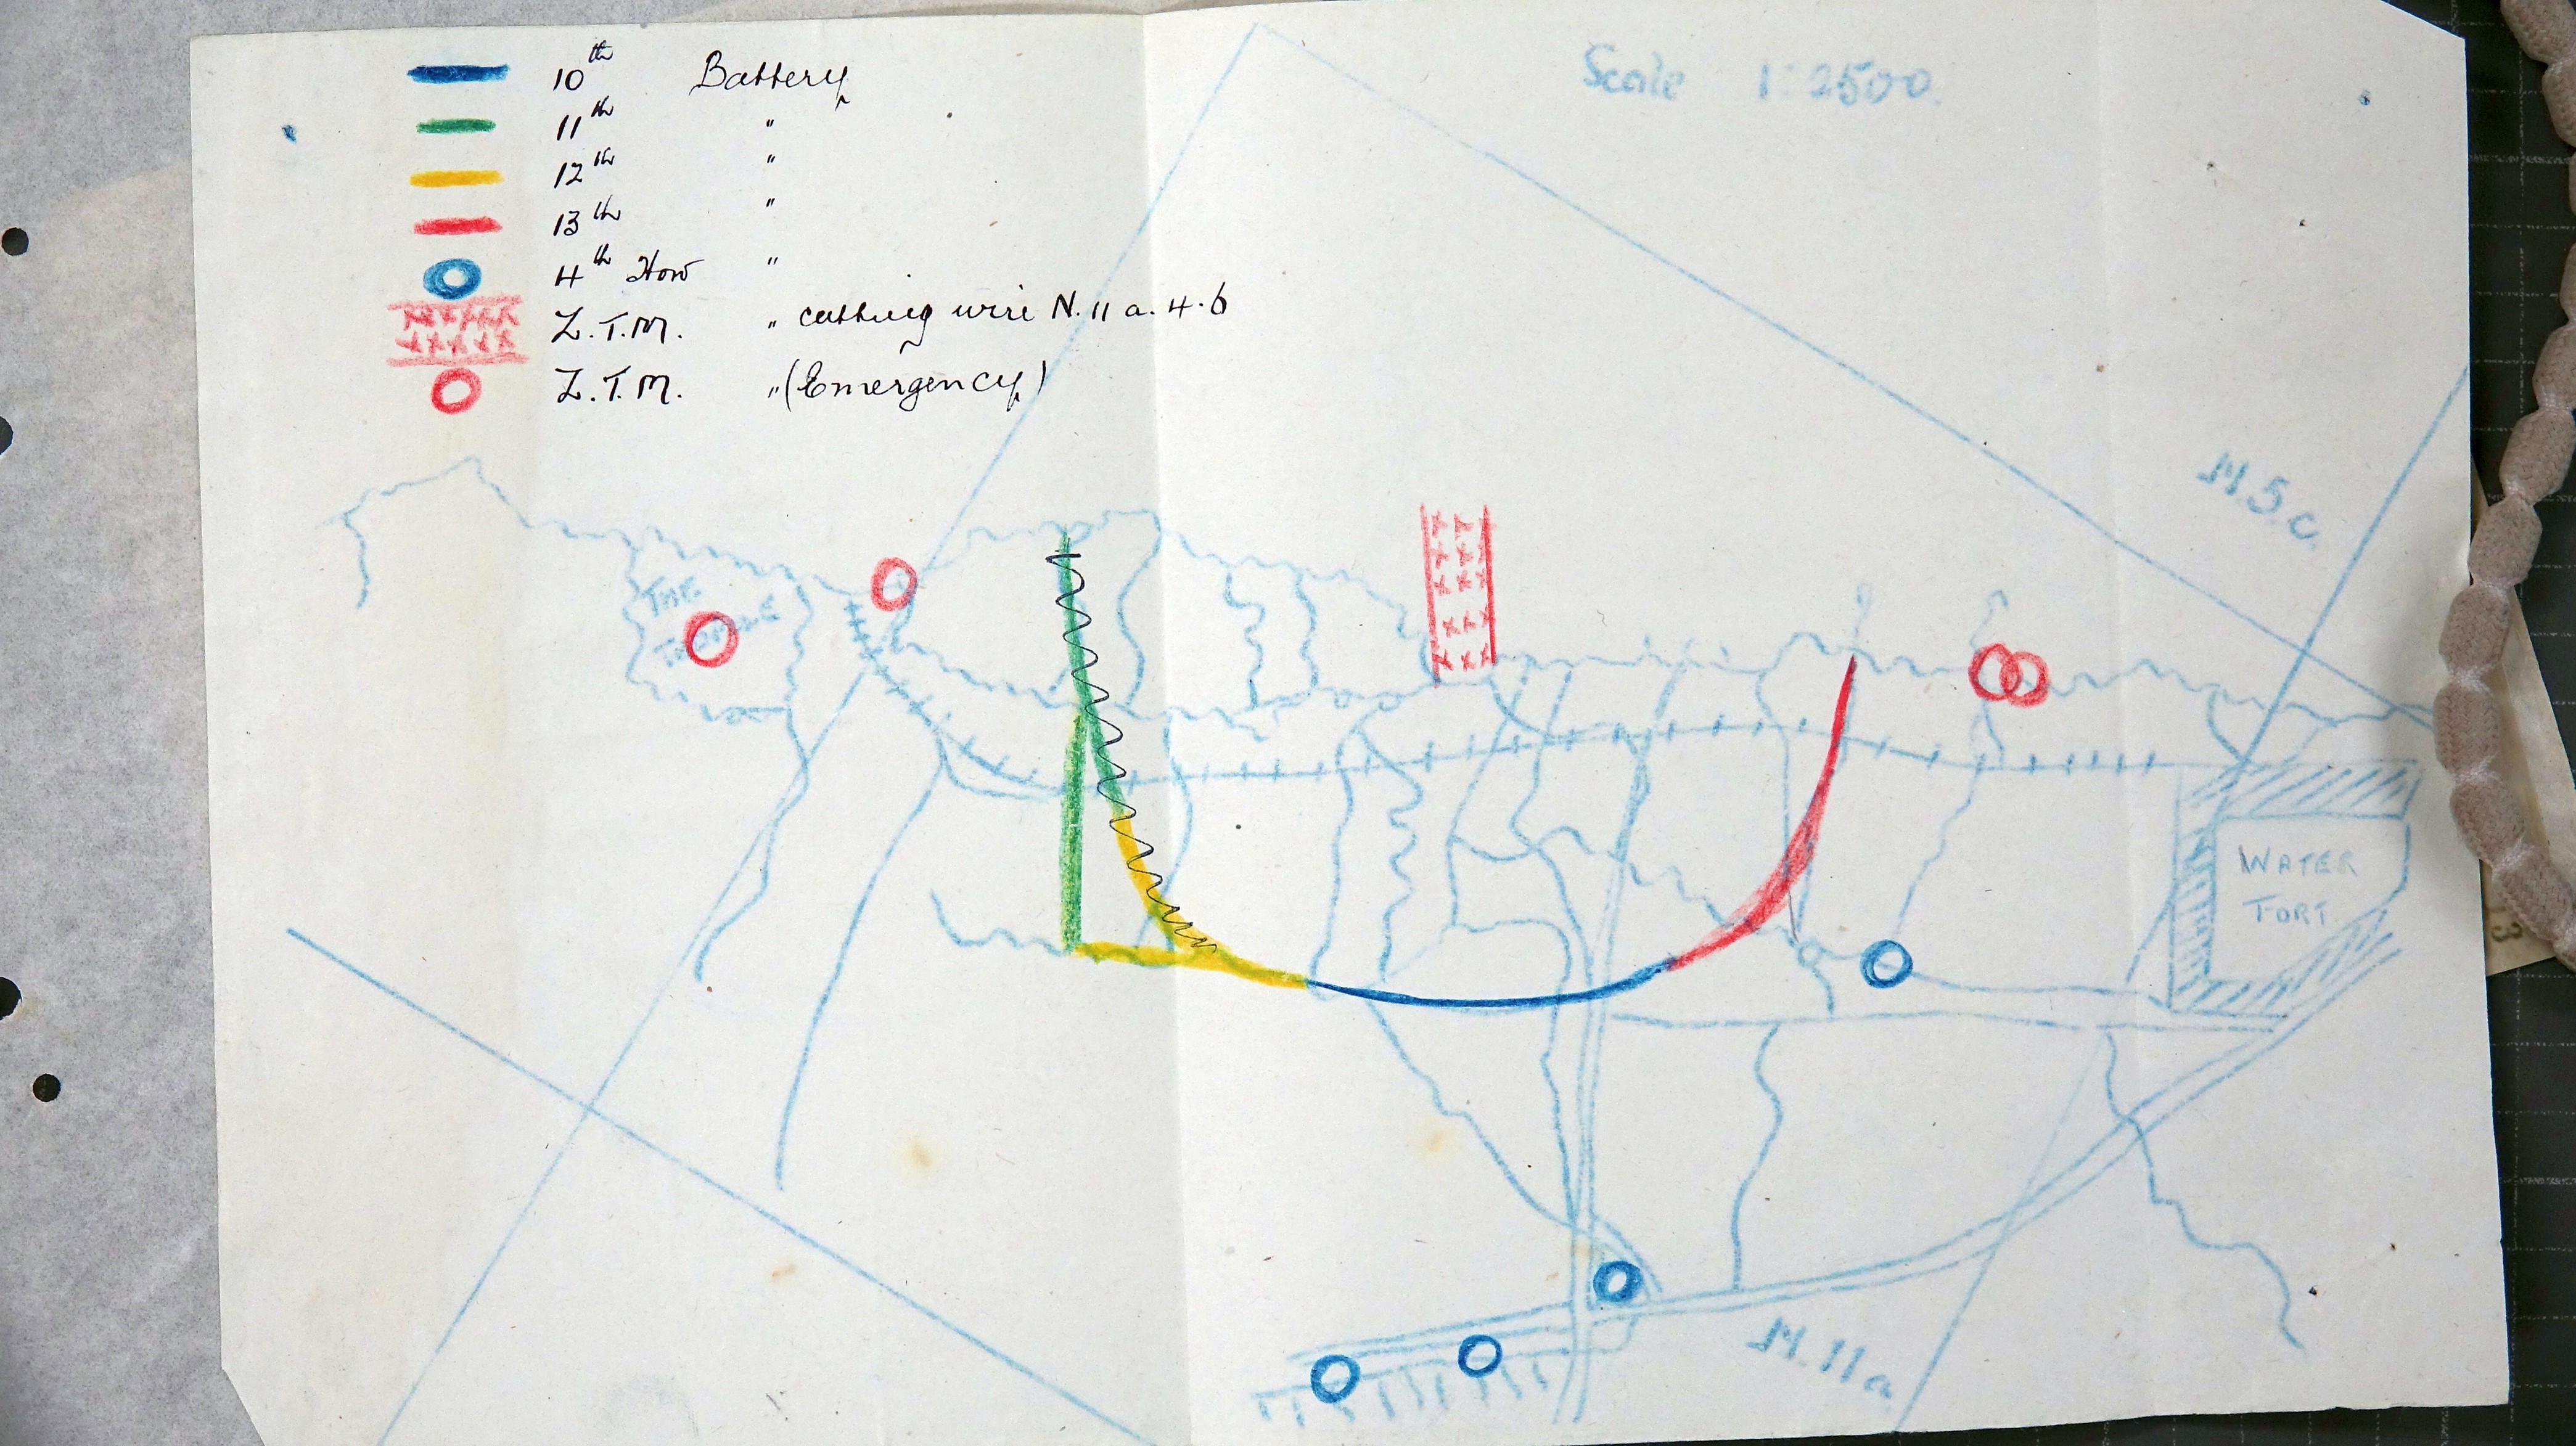 10th Battery
11th "
12th "
13th "
4th How "
L.T.M. " cutting wire N.11 a.4.6
L.T.M. " (Emergency)
Scale 1:2500.
N.5.c.
THE
WATER
FORT.
N.11a.